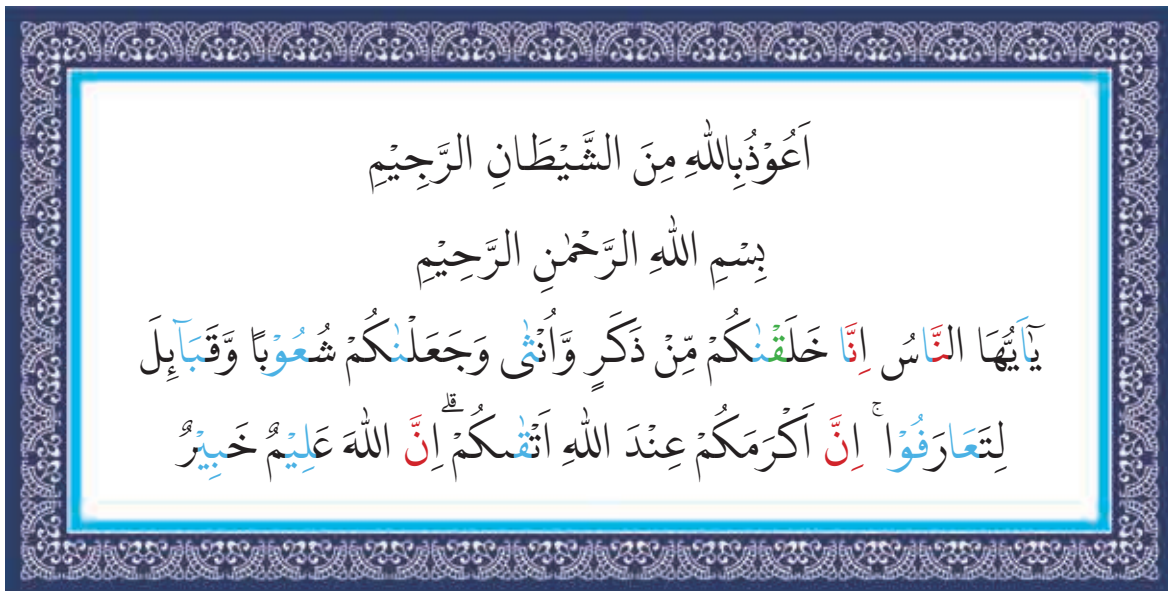 اَعُوْذُبِاللّٰهِ مِنَ الشَّيْطَانِ الرَّجِيْمِ
بِسْمِ اللّٰهِ الرَّحْمٰنِ الرَّحِيْمِ
يٰٓاَيُّهَا النَّاسُ اِنَّا خَلَقْنٰكُمْ مِّنْ ذَكَرٍ وَّاُنْثٰى وَجَعَلْنٰكُمْ شُعُوْبًا وَّقَبَآئِلَ
لِتَعَارَفُوْا ۚ اِنَّ اَكْرَمَكُمْ عِنْدَ اللّٰهِ اَتْقٰىكُمْ ۗ اِنَّ اللّٰهَ عَلِيْمٌ خَبِيْرٌ